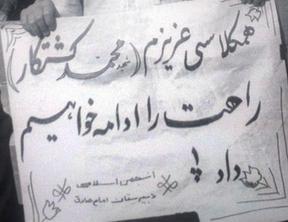 همکلاسی عزیزم (محمد کشتکار)
راهت را ادامه خواهیم
داد
انجمن اسلامی
دبیرستان امام صادق